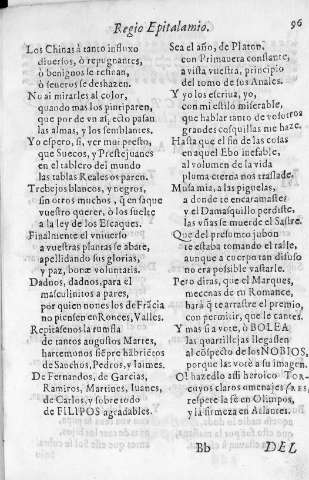 Regio Epitalamio. 96
Los Chinas à tanto influxo
diuersos, ò repugnantes,
ò benignos se refinan,
ò seueros se deshazen.
No ai mirarles al color,
quando mas los pinriparen,
que por de vn así, ecto pasan
las almas, y los semblantes.
Yo espero, si, ver mui presto,
que Suecos, y Prestejuanes
en el tablero del mundo
las tablas Reales os paren.
Trebejos blancos, y negros,
sin otros muchos, q̃ en saque
vuestro querer, ò los suelte
a la ley de los Escaques.
Finalmente el vniuerso
a vuestras plantas se abate,
apellidando sus glorias,
y paz, bonæ voluntatis.
Dadnos, dadnos, para el
masculinitos a pares
por quien nones los de Frãcia
no piensen en Ronces, Valles.
Repitasenos la
de tantos augustos Martes,
hartemonos siẽpre hãbriẽtos
de Sanchos, Pedros, y Iaimes.
De Fernandos, de Garcias,
Ramiros, Martines, Iuanes,
de Carlos, y sobre todo
de FILIPOS agradables.
Sea el año, de Platon,
con Primauera constante,
a vista vuestra, principio
del tomo de sus Anales.
Y yo los escriua, yo,
con mi estilo miserable,
que hablar tanto de vosotros
grandes cosquillas me haze.
Hasta que el fin de las cosas
en aquel Ebo inefable,
al volumen de la vida
pluma eterna nos traslade.
Musa mia, a las piguelas,
a donde te encaramastes
y el Damasquillo perdiste,
las vñas se muerde el Sastre.
Que del presumto jubon
te estaba tomando el talle,
aunque a cuerpo tan difuso
no era posible vastarle.
Pero diras, que el Marques,
mecenas de mi Romance,
hará q̃ te arrastre el premio,
con permitir, que le cantes.
Y mas si a vote, ò BOLEA
las quartillejas llegassen
al cõspecto de los NOBIOS,
porque las vote a su imagen.
O! hazedlo assi heroico TOR-
cuyos claros omenajes (RES,
respete la fè en Olimpos,
y la firmeza en Atlantes.
Bb DEL